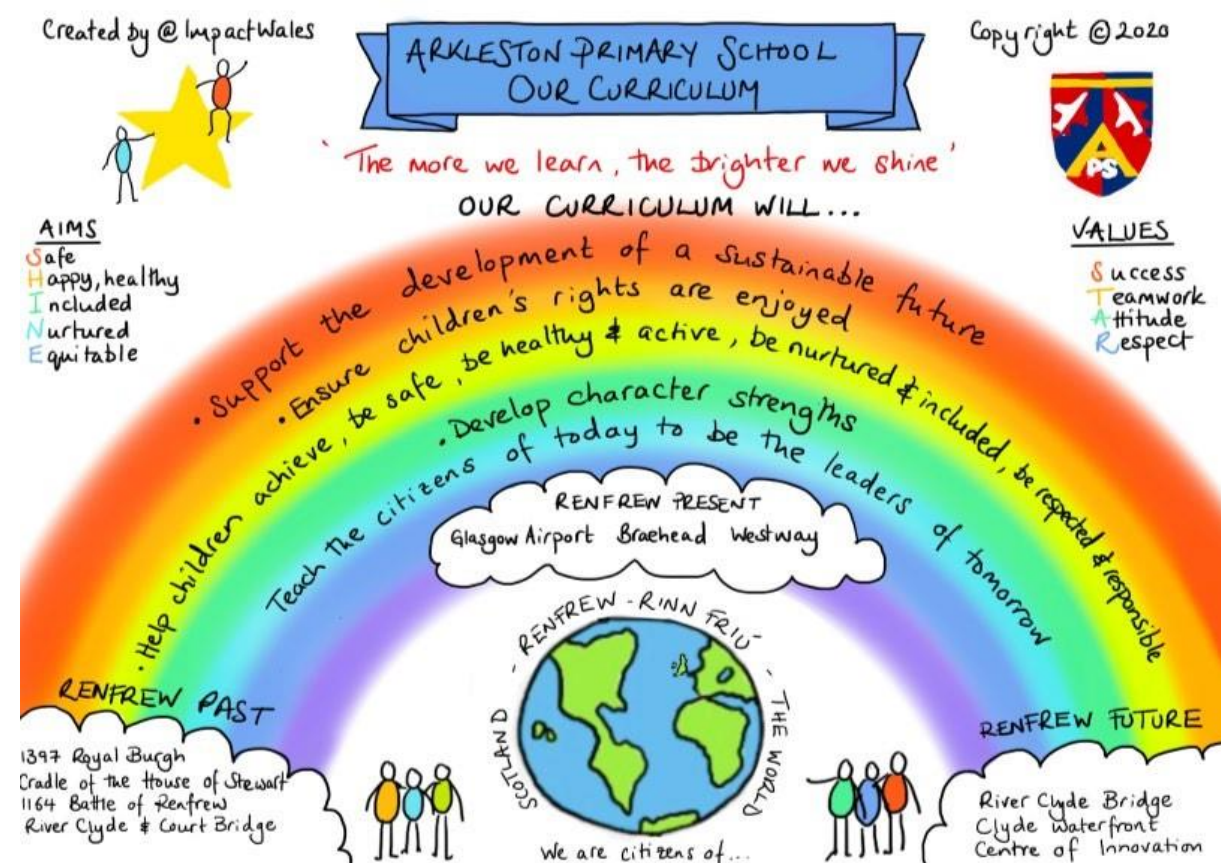 Created by @ImpactWales
ARKLESTON PRIMARY SCHOOL
OUR CURRICULUM
Copyright © 2020
'The more we learn, the brighter we shine'
OUR CURRICULUM WILL...
APS
AIMS
Safe
Happy, healthy
Included
Nurtured
Equitable
VALUES
Success
Teamwork
Attitude
Respect
• Support the development of a sustainable future
• Ensure children's rights are enjoyed
• Help children achieve, be safe, be healthy & active, be nurtured & included, be respected & responsible
• Develop character strengths
Teach the citizens of today to be the leaders of tomorrow
RENFREW PRESENT
Glasgow Airport Braehead Westway
RENFREW PAST
1397 Royal Burgh
Cradle of the House of Stewart
1164 Battle of Renfrew
River Clyde & Court Bridge
SCOTLAND - RENFREW - RINN FRIÙ - THE WORLD
We are citizens of...
RENFREW FUTURE
River Clyde Bridge
Clyde Waterfront
Centre of Innovation